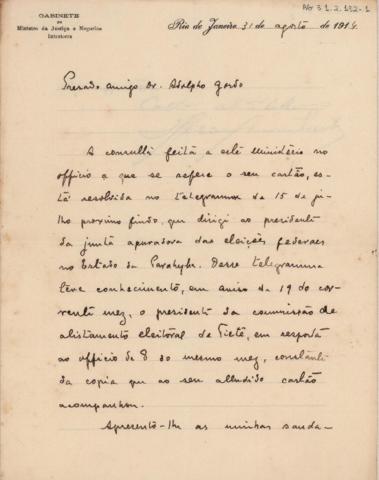 AG 31.2.132-1
GABINETE
DO
Ministro da Justiça e Negocios
Interiores
Rio de Janeiro 31 de agosto de 1914
Presado amigo Dr. Adolpho Gordo
A consulta feita a este Ministério no
officio a que se refere o seu cartão, es-
tá resolvida no telegramma de 15 de ju-
lho proximo findo, que dirigi ao presidente
da junta apuradora das eleições federaes
no Estado da Parahyba. Desse telegramma
teve conhecimento, em aviso de 19 do cor-
rente mez, o presidente da commissão de
alistamento eleitoral de Tieté, em resposta
ao officio de 8 do mesmo mez, constante
da copia que ao seu alludido cartão
acompanhou.
Apresento-lhe as minhas sauda-